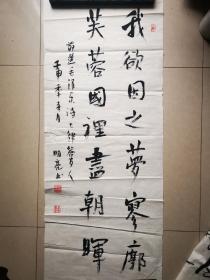 我欲因之夢寥廓
芙蓉國裡盡朝暉
前選毛澤東詩七律答友人
壬申冬月